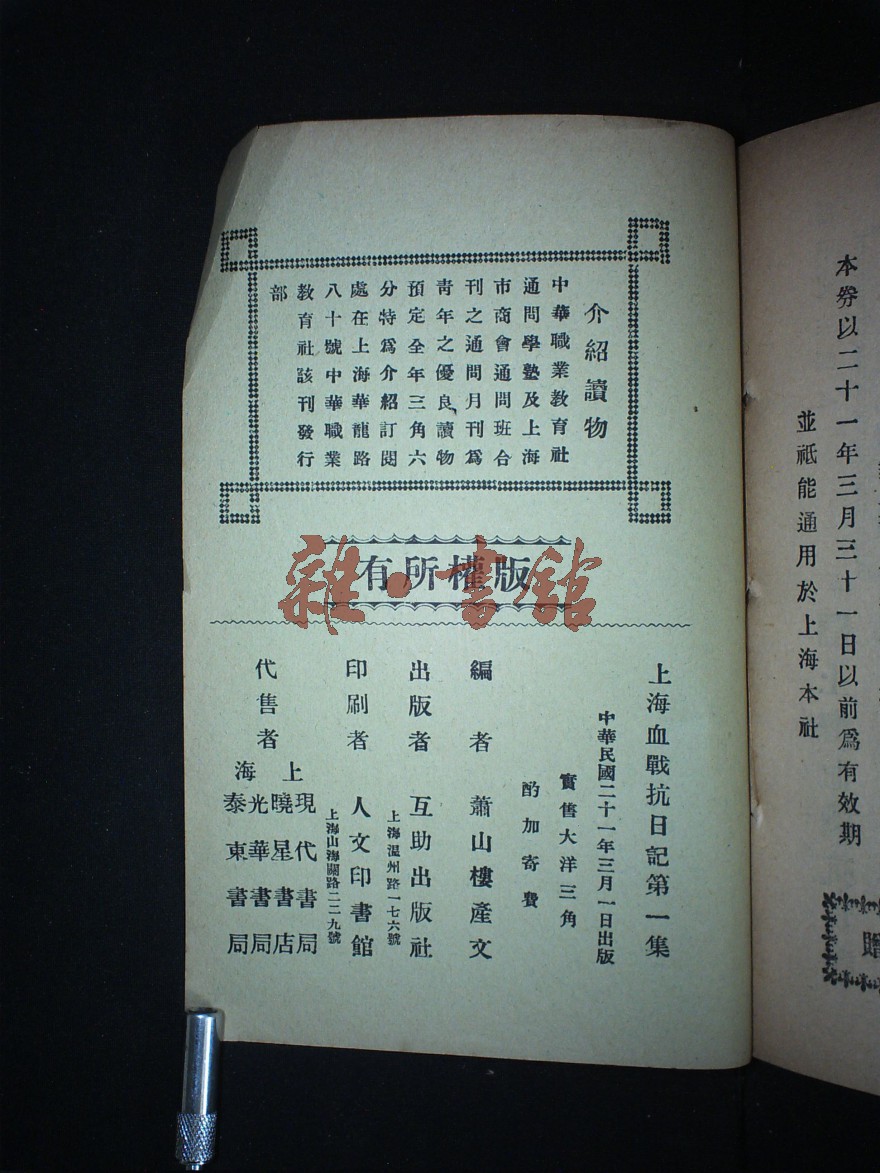 本券以二十一年三月三十一日以前爲有效期
並祗能通用於上海本社
贈
介紹讀物
中華職業教育社
通問學塾及上海
市商會通問班合
刊之通問月刊爲
靑年之優良讀物
預定全年三角六
分特爲介紹訂閱
處在上海華龍路
八十號中華職業
教育社該刊發行
部
有所權版
雜·書館
上海血戰抗日記第一集
中華民國二十一年三月一日出版
實售大洋三角
酌加寄費
編者 蕭山樓產文
出版者 互助出版社
上海溫州路一七六號
印刷者 人文印書館
上海山海關路二二九號
代售者
上海
現代書局
曉星書店
光華書局
泰東書局